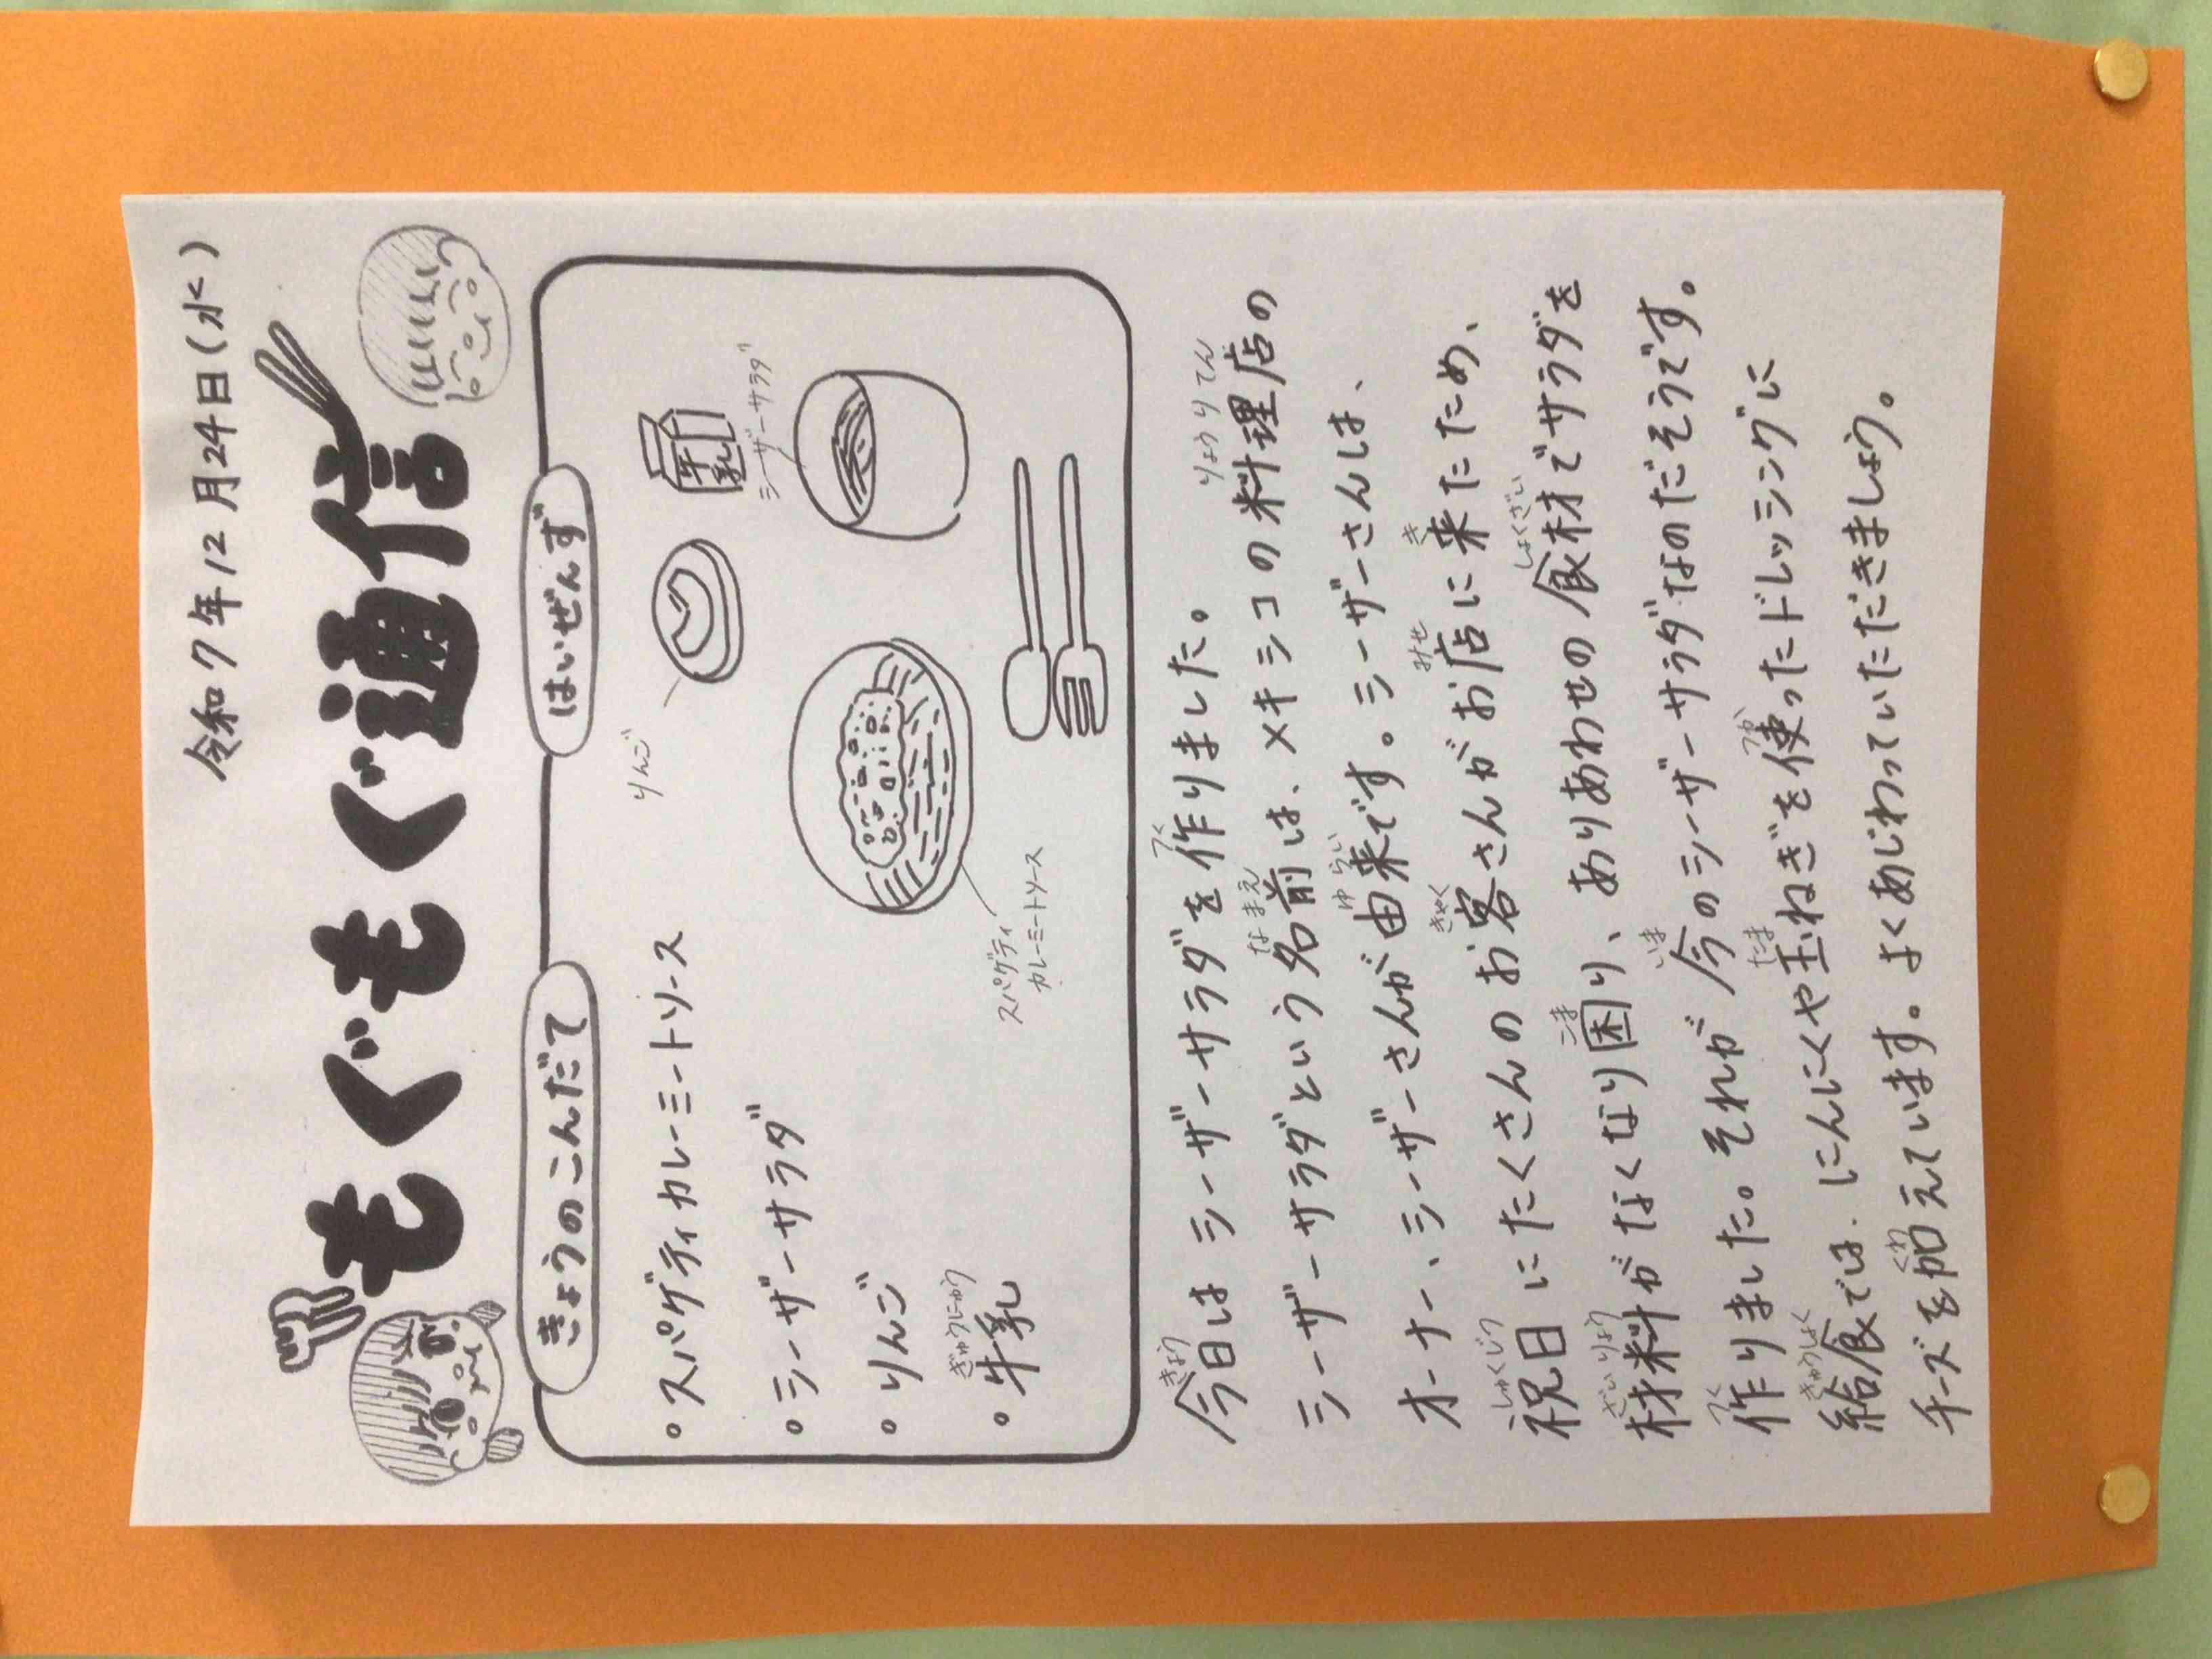 令和7年12月24日(水)
もぐもぐ通信
きょうのこんだて
はいぜんず
・スパゲティカレーミートソース
・シーザーサラダ
・りんご
ぎゅうにゅう
・牛乳
りんご
牛乳
シーザーサラダ
スパゲティ
カレーミートソース
きょう つく
今日は シーザーサラダを作りました。
なまえ りょうりてん
シーザーサラダという名前は、メキシコの料理店の
ゆらい
オーナー、シーザーさんが由来です。シーザーさんは、
しゅくじつ きゃく みせ き
祝日にたくさんのお客さんがお店に来たため、
ざいりょう こま しょくざい
材料がなくなり困り、ありあわせの食材でサラダを
つく いま
作りました。それが今のシーザーサラダなのだそうです。
きゅうしょく たま つか
給食では、にんにくや玉ねぎを使ったドレッシングに
くわ
チーズを加えています。よくあじわっていただきましょう。